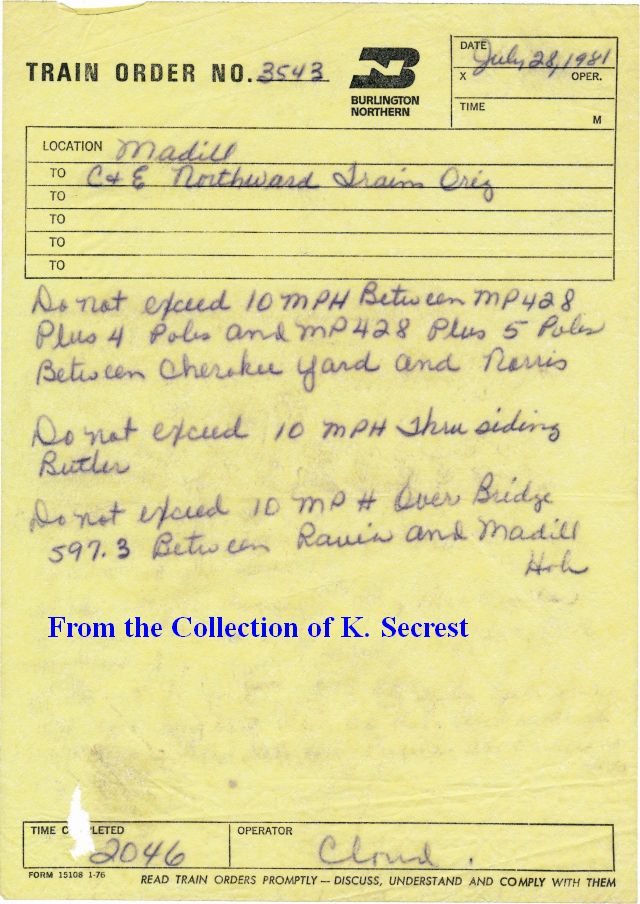 TRAIN ORDER NO. 3543
BURLINGTON
NORTHERN
DATE July 28, 1981
X OPER.
TIME
M
LOCATION Madill
TO C & E Northward Trains Orig
TO
TO
TO
TO
Do not exceed 10 MPH Between MP428
Plus 4 Poles and MP428 Plus 5 Poles
Between Cherokee Yard and Norris
Do not exceed 10 MPH Thru siding
Butler
Do not exceed 10 MPH Over Bridge
597.3 Between Ravia and Madill
From the Collection of K. Secrest
TIME C PLETED
2046
OPERATOR
Cloud.
FORM 15108 1-76
READ TRAIN ORDERS PROMPTLY — DISCUSS, UNDERSTAND AND COMPLY WITH THEM